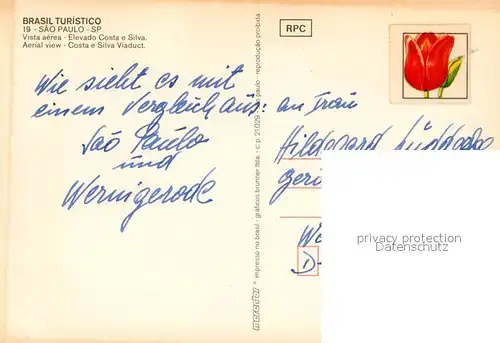 BRASIL TURÍSTICO
19 - SÃO PAULO - SP
Vista aérea - Elevado Costa e Silva.
Aerial view - Costa e Silva Viaduct.
RPC
Wie sieht es mit
einem Vergleich aus:
São Paulo
und
Wernigerode
an Frau
Hildegard
privacy protection by
my-Dealer.com
D-
mercator impresso no brasil - gráficos brunner ltda. - c.p. 21.029 paulo - reprodução proibida